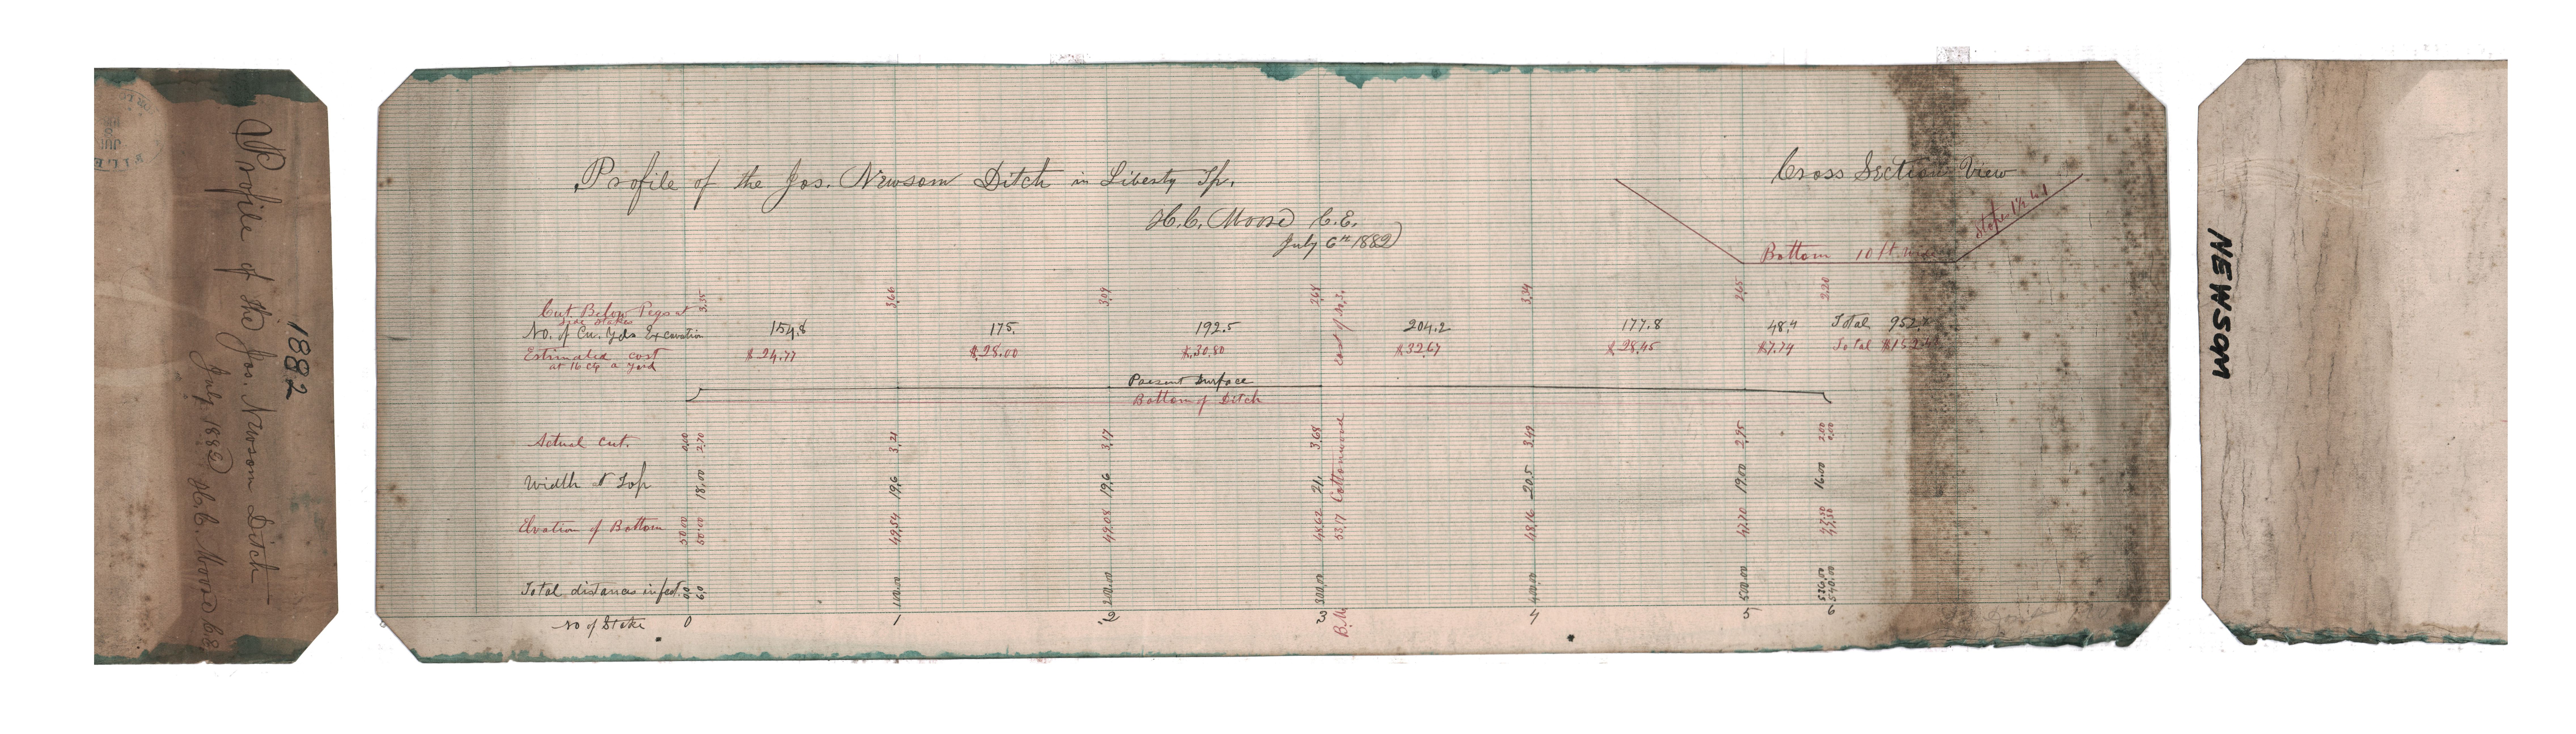 1882
Profile of the Jos. Newsom Ditch
July 1882 H.C. Moore C.E.
FILED
Profile of the Jos. Newsom Ditch in Liberty Tp.
H.C. Moore C.E.
July 6th 1882
Cross Section View
Slope 1½ to 1
Bottom 10 ft.
Cut Below Pegs at
side stakes
3.35 3.66 3.09 2.68 3.34 2.65 2.20
No. of Cu. Yds Excavation 154.8 175. 192.5 204.2 177.8 48.4 Total 952.
Estimated cost $24.77 $28.00 $30.80 $32.67 $28.45 $7.74 Total
at 16 cts a yard
Present Surface
Bottom of Ditch
Actual cut. 0.00 2.70 3.21 3.17 3.68 3.49 2.95 2.00 0.00
Width at Top 18.00 19.6 19.6 21. 20.5 19.00 16.00
Elvation of Bottom 50.00 50.00 49.54 49.08 48.62 48.16 47.70 47.30 47.30
Total distances in feet. 0.0 6.0 100.00 200.00 300.00 400.00 500.00 526.00 540.00
No of Stake 0 1 2 3 4 5 6
B.M. 53.17 Cottonwood East of No. 3.
NEWSOM